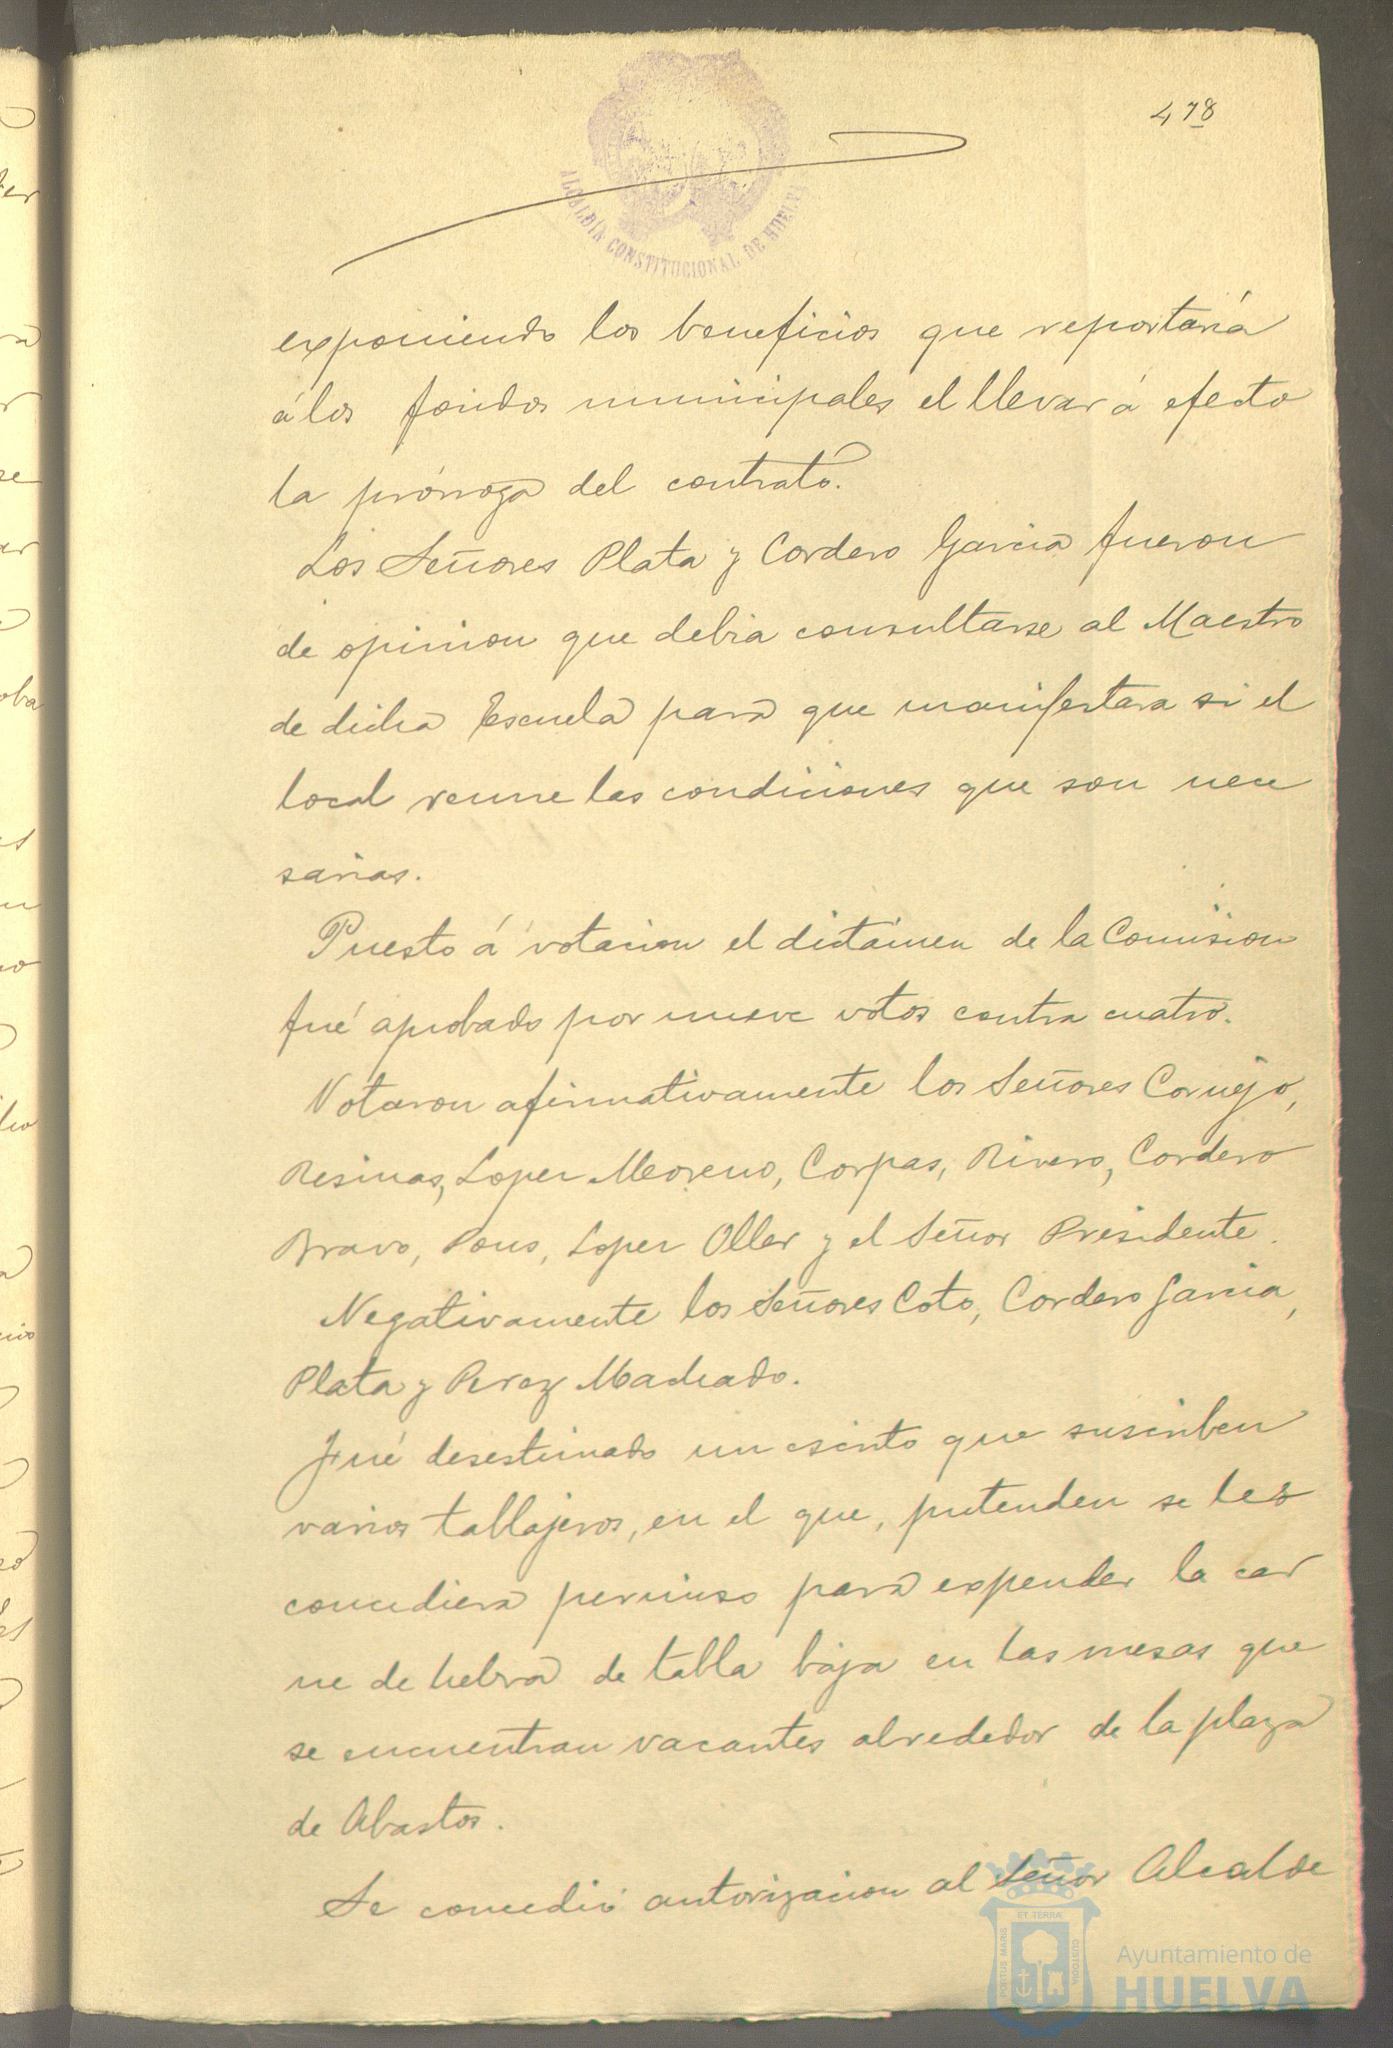 478
ALCALDÍA CONSTITUCIONAL DE HUELVA
exponiendo los beneficios que reportaria
á los fondos municipales el llevar á efecto
la prórroga del contrato.
Los Señores Plata y Cordero Garcia fueron
de opinion que debia consultarse al Maestro
de dicha Escuela para que manifestara si el
local reune las condiciones que son nece
sarias.
Puesto á votacion el dictámen de la Comision
fué aprobado por nueve votos contra cuatro.
Votaron afirmativamente los Señores Cornejo,
Resinas, Lopez Moreno, Corpas, Rivero, Cordero
Bravo, Pons, Lopez Oller y el Señor Presidente.
Negativamente los Señores Coto, Cordero Garcia,
Plata y Perez Machado.
Fué desestimado un escrito que suscriben
varios tablajeros, en el que, pretenden se les
concediera permiso para expender la car
ne de hebra de tabla baja en las mesas que
se encuentran vacantes alrededor de la plaza
de Abastos.
Se concedió autorizacion al Señor Alcalde
PORTUS MARIS
ET TERRÆ
CUSTODIA
Ayuntamiento de
HUELVA